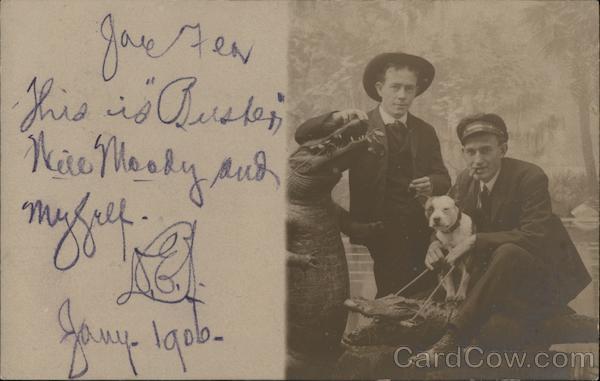 Jax Fla
This is "Buster",
Will Moody and
myself.
Jany- 1906-
CardCow.com